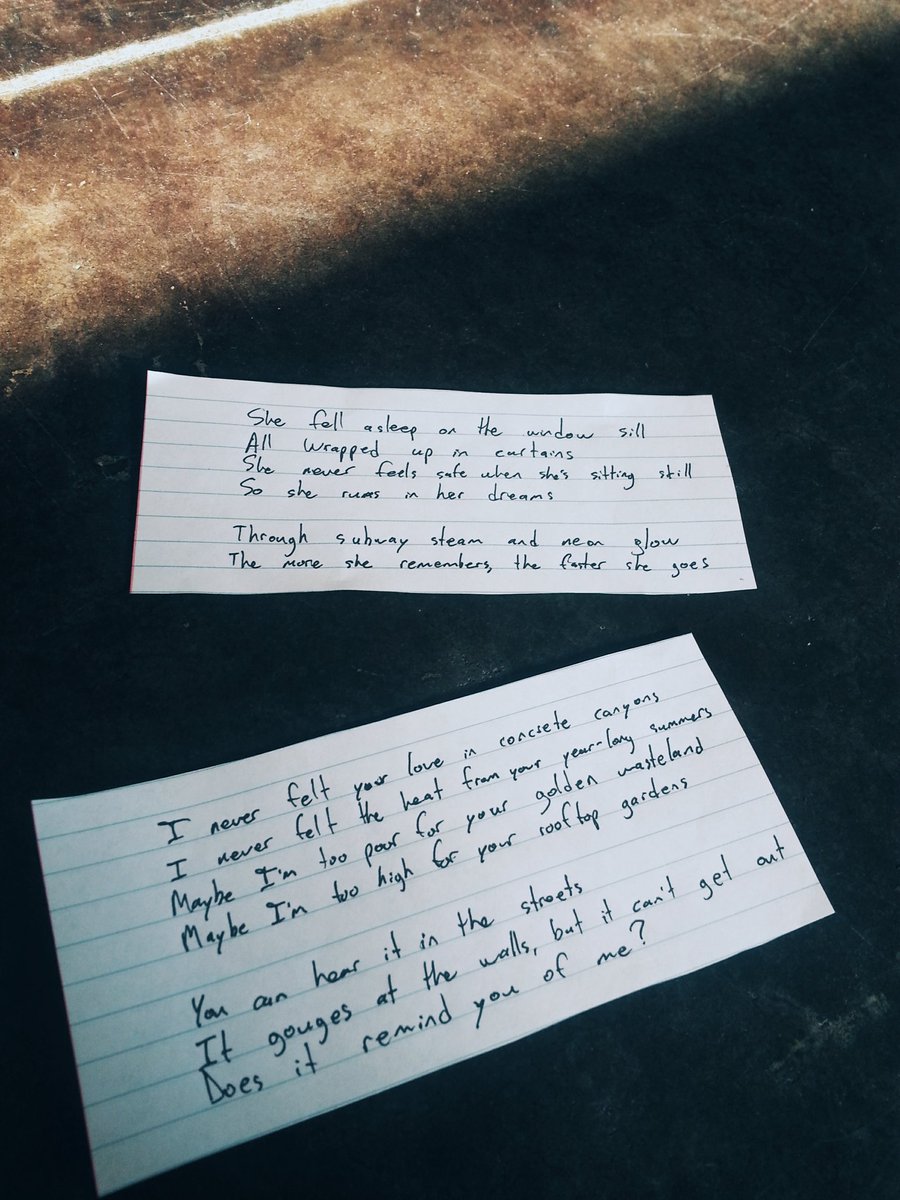 She fell asleep on the window sill
All wrapped up in curtains
She never feels safe when she's sitting still
So she runs in her dreams
Through subway steam and neon glow
The more she remembers, the faster she goes
I never felt your love in concrete canyons
I never felt the heat from your year-long summers
Maybe I'm too poor for your golden wasteland
Maybe I'm too high for your rooftop gardens
You can hear it in the streets
It gouges at the walls, but it can't get out
Does it remind you of me?